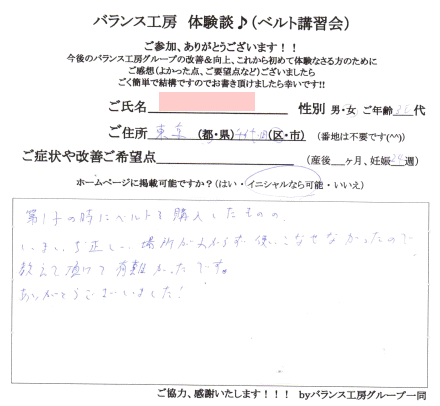 バランス工房 体験談♪(ベルト講習会)
ご参加、ありがとうございます！！
今後のバランス工房グループの改善&向上、これから初めて体験なさる方のために
ご感想(よかった点、ご要望点など)ございましたら
ごく簡単で結構ですのでお書き頂けましたら幸いです!!
ご氏名 性別 男・女 ご年齢 30代
ご住所 東京 (都・県) 千代田 (区・市) (番地は不要です(^^))
ご症状や改善ご希望点 (産後 ヶ月、妊娠 週)
ホームページに掲載可能ですか？(はい・イニシャルなら可能・いいえ)
第1子の時にベルトを購入したものの、
いまいち正しい場所がわからず使いこなせなかったので
教えて頂けて有難かったです。
ありがとうございました！
ご協力、感謝いたします！！！ byバランス工房グループ一同